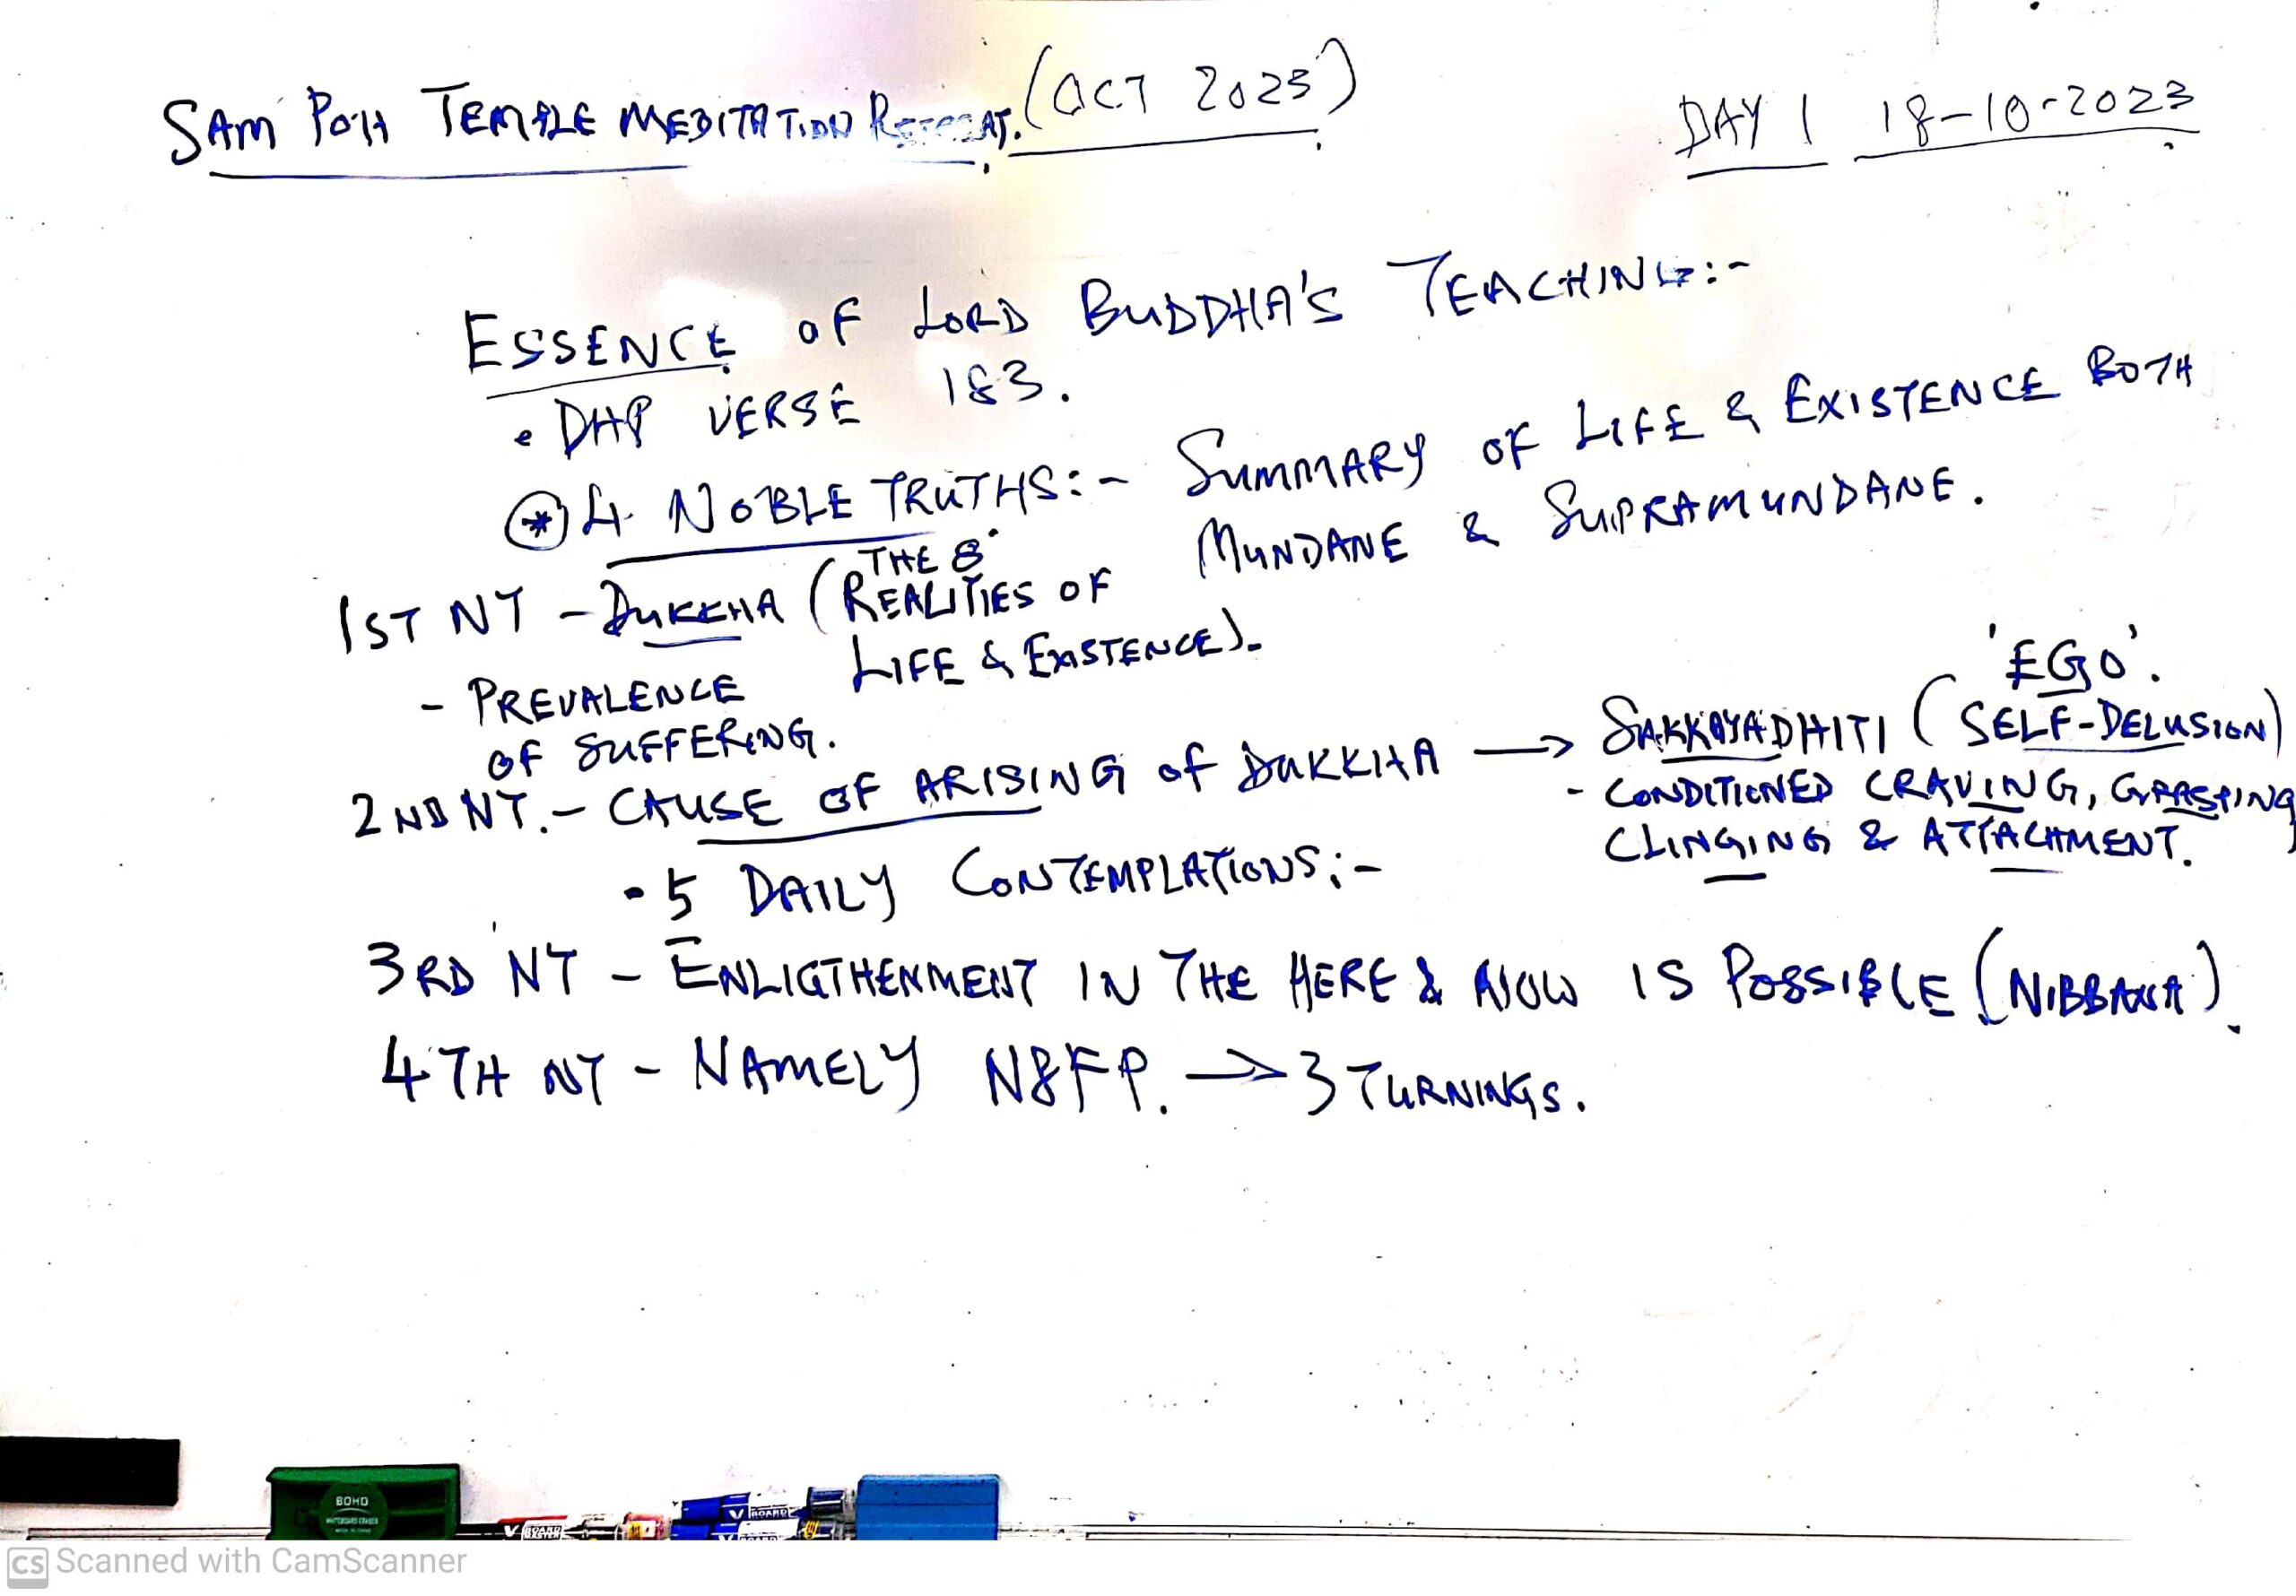 SAM POH TEMPLE MEDITATION RETREAT. (OCT 2023)
DAY 1 18-10-2023
ESSENCE OF LORD BUDDHA'S TEACHING:-
• DHP VERSE 183.
* 4 NOBLE TRUTHS:- SUMMARY OF LIFE & EXISTENCE BOTH
MUNDANE & SUPRAMUNDANE.
1ST NT - DUKKHA (THE 8 REALITIES OF
LIFE & EXISTENCE).
- PREVALENCE
OF SUFFERING.
'EGO'.
2ND NT. - CAUSE OF ARISING OF DUKKHA → SAKKAYADHITI (SELF-DELUSION)
- CONDITIONED CRAVING, GRASPING,
CLINGING & ATTACHMENT.
• 5 DAILY CONTEMPLATIONS:-
3RD NT - ENLIGTHENMENT IN THE HERE & NOW IS POSSIBLE (NIBBANA).
4TH NT - NAMELY N8FP. → 3 TURNINGS.
BOHO
V BOARD MASTER
V BOARD
CS Scanned with CamScanner